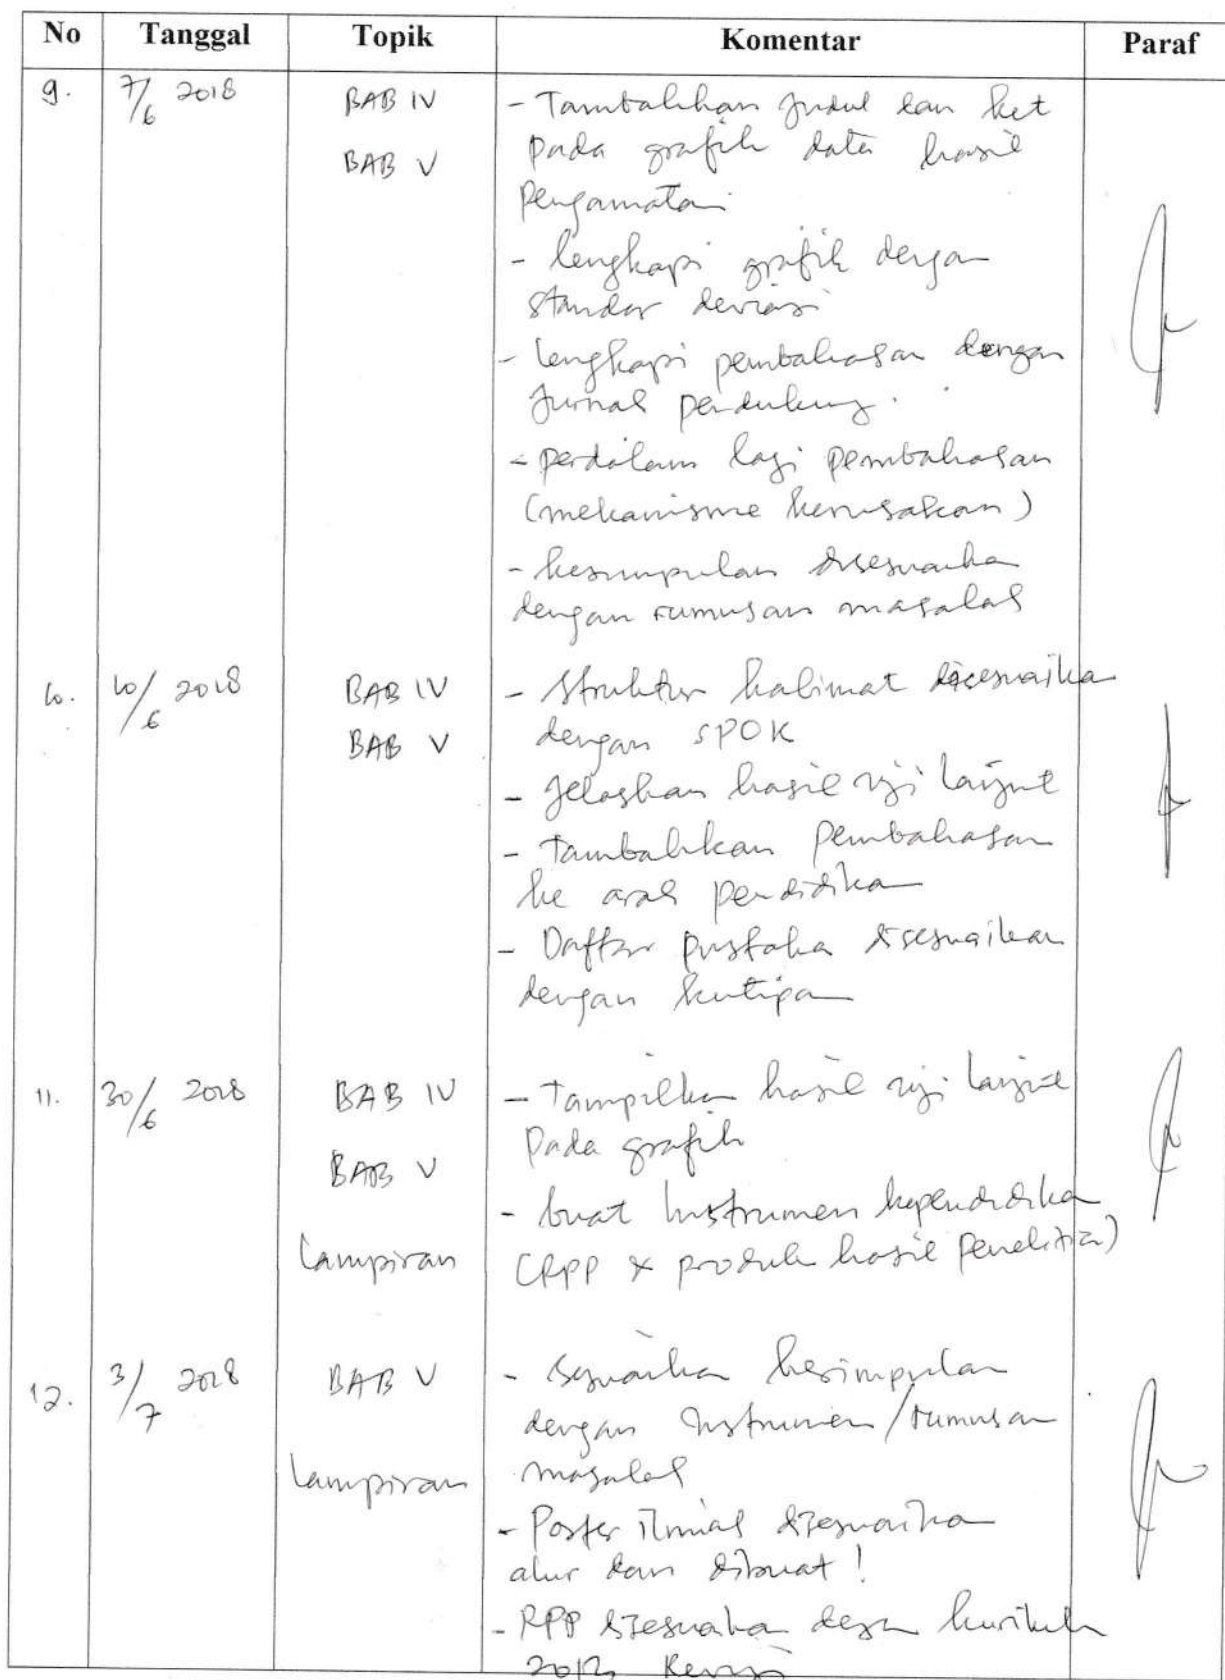 No Tanggal Topik Komentar Paraf
9. 7/6 2018 BAB IV - Tambahkan Judul dan ket
BAB V pada grafik data hasil
pengamatan
- lengkapi grafik dengan
standar deviasi
- lengkapi pembahasan dengan
Jurnal pendukung.
- perdalam lagi pembahasan
(mekanisme kerusakan)
- kesimpulan disesuaika
dengan rumusan masalah
10. 10/6 2018 BAB IV - Struktur kalimat disesuaika
BAB V dengan SPOK
- Jelaskan hasil uji lanjut
- Tambahkan pembahasan
ke arah pendidika
- Daftar pustaka disesuaikan
dengan kutipan
11. 30/6 2018 BAB IV - Tampilkan hasil uji lanjut
BAB V pada grafik
- buat Instrumen kependidika
Lampiran (RPP & produk hasil penelitian)
12. 3/7 2018 BAB V - Sesuaika kesimpulan
dengan Instrumen/rumusan
Lampiran masalah
- Poster ilmiah disesuaika
alur dan dibuat!
- RPP disesuaika dengan kurikulum